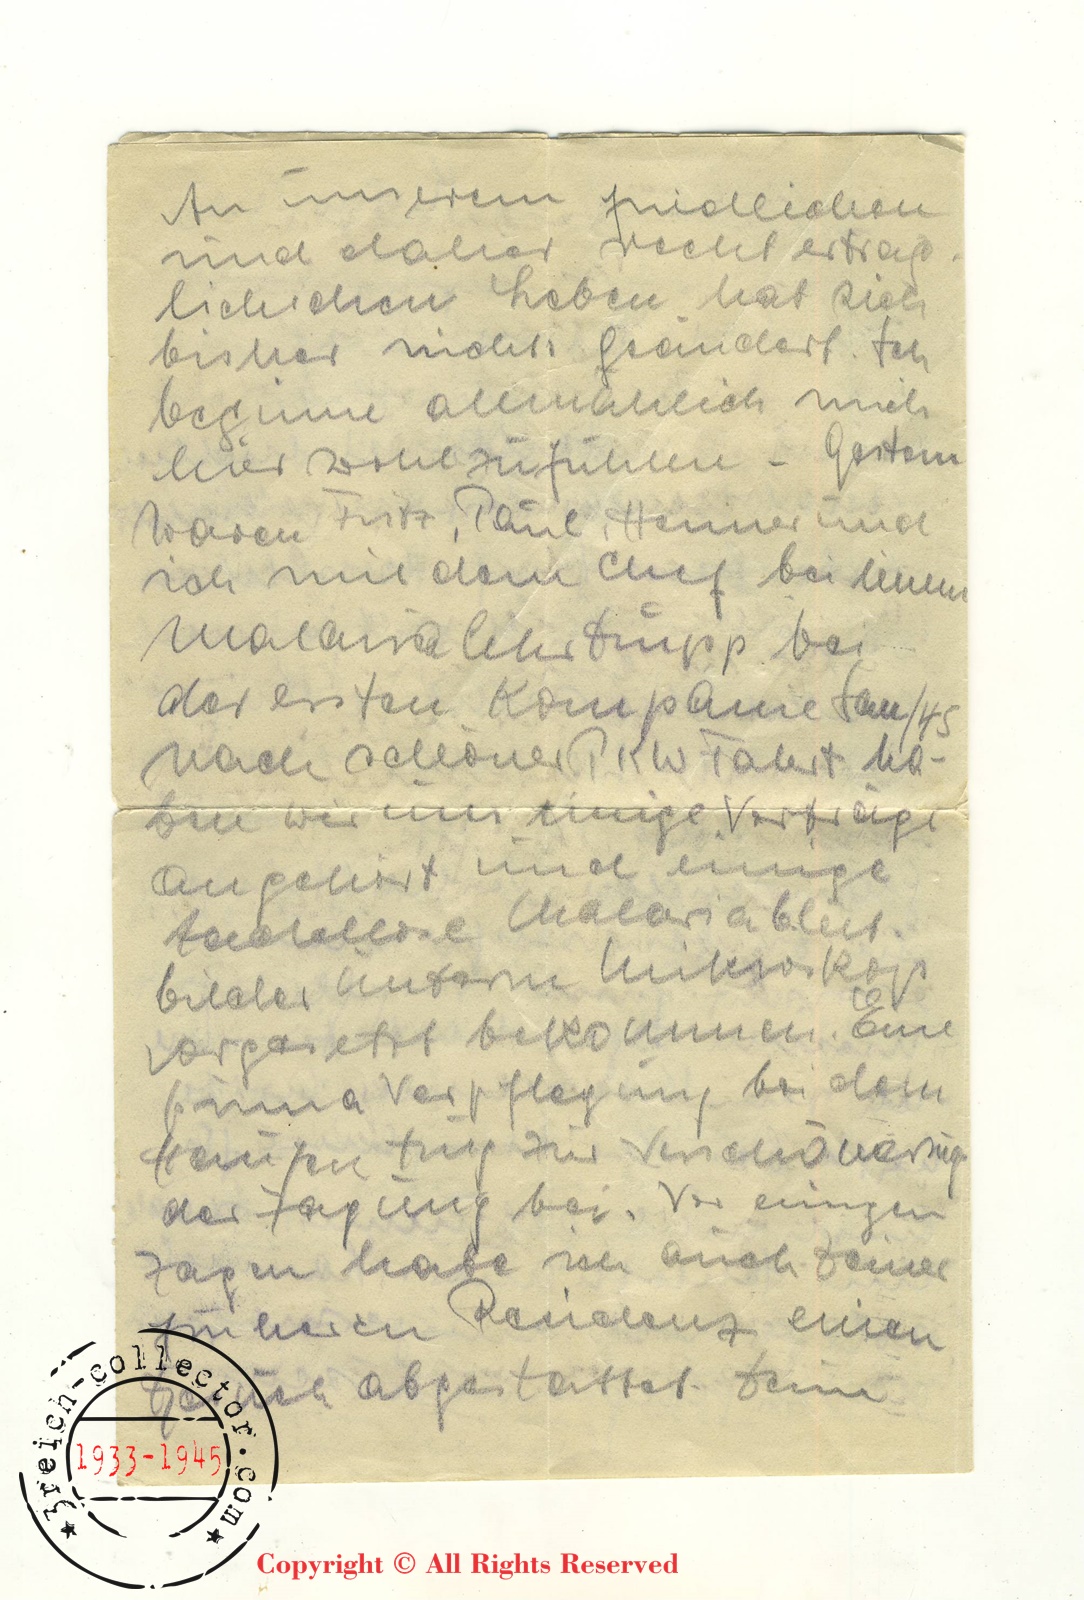 An unserem friedlichen
und daher recht erträg-
lichichen Leben hat sich
bisher nichts geändert. Ich
beginne allmählich mich
hier wohlzufühlen - Gestern
waren Fritz, Paul, Henner und
ich mit dem Chef bei einem
Malarialehrtrupp bei
der ersten Kompanie San/45
Nach schöner PKW Fahrt ha-
ben wir uns einige Vorträge
angehört und einige
tadellose Malariablut-
bilder unterm Mikroskop
vorgesetzt bekommen. Eine
prima Verpflegung bei dem
Haufen trug zur Verschönerung
der Tagung bei. Vor einigen
Tagen habe ich auch Deiner
früheren Residenz einen
Besuch abgestattet. Dein
3reich-collector.com
1933-1945
Copyright © All Rights Reserved